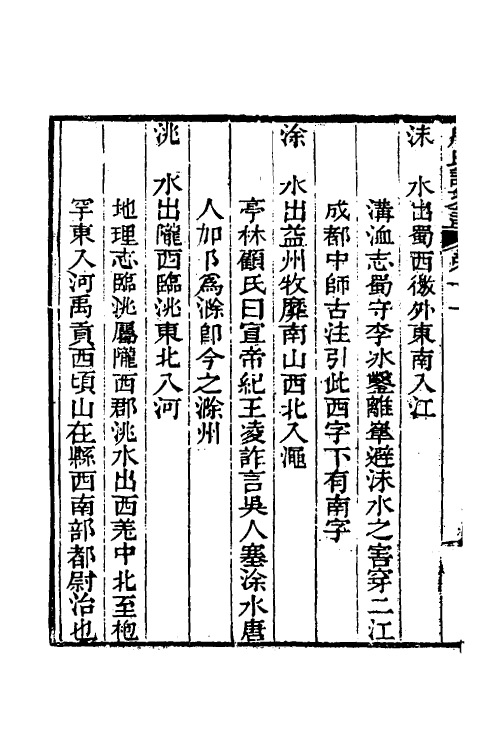 沬　水出蜀西徼外東南入江
溝洫志蜀守李冰鑿離𨹟避沬水之害穿二江
成都中師古注引此西字下有南字
涂　水出益州牧靡南山西北入澠
亭林顧氏曰宣帝紀王凌詐言吳人塞涂水唐
人加阝爲滁卽今之滁州
洮　水出隴西臨洮東北入河
地理志臨洮屬隴西郡洮水出西羌中北至枹
罕東入河禹貢西頃山在縣西南部都尉治也